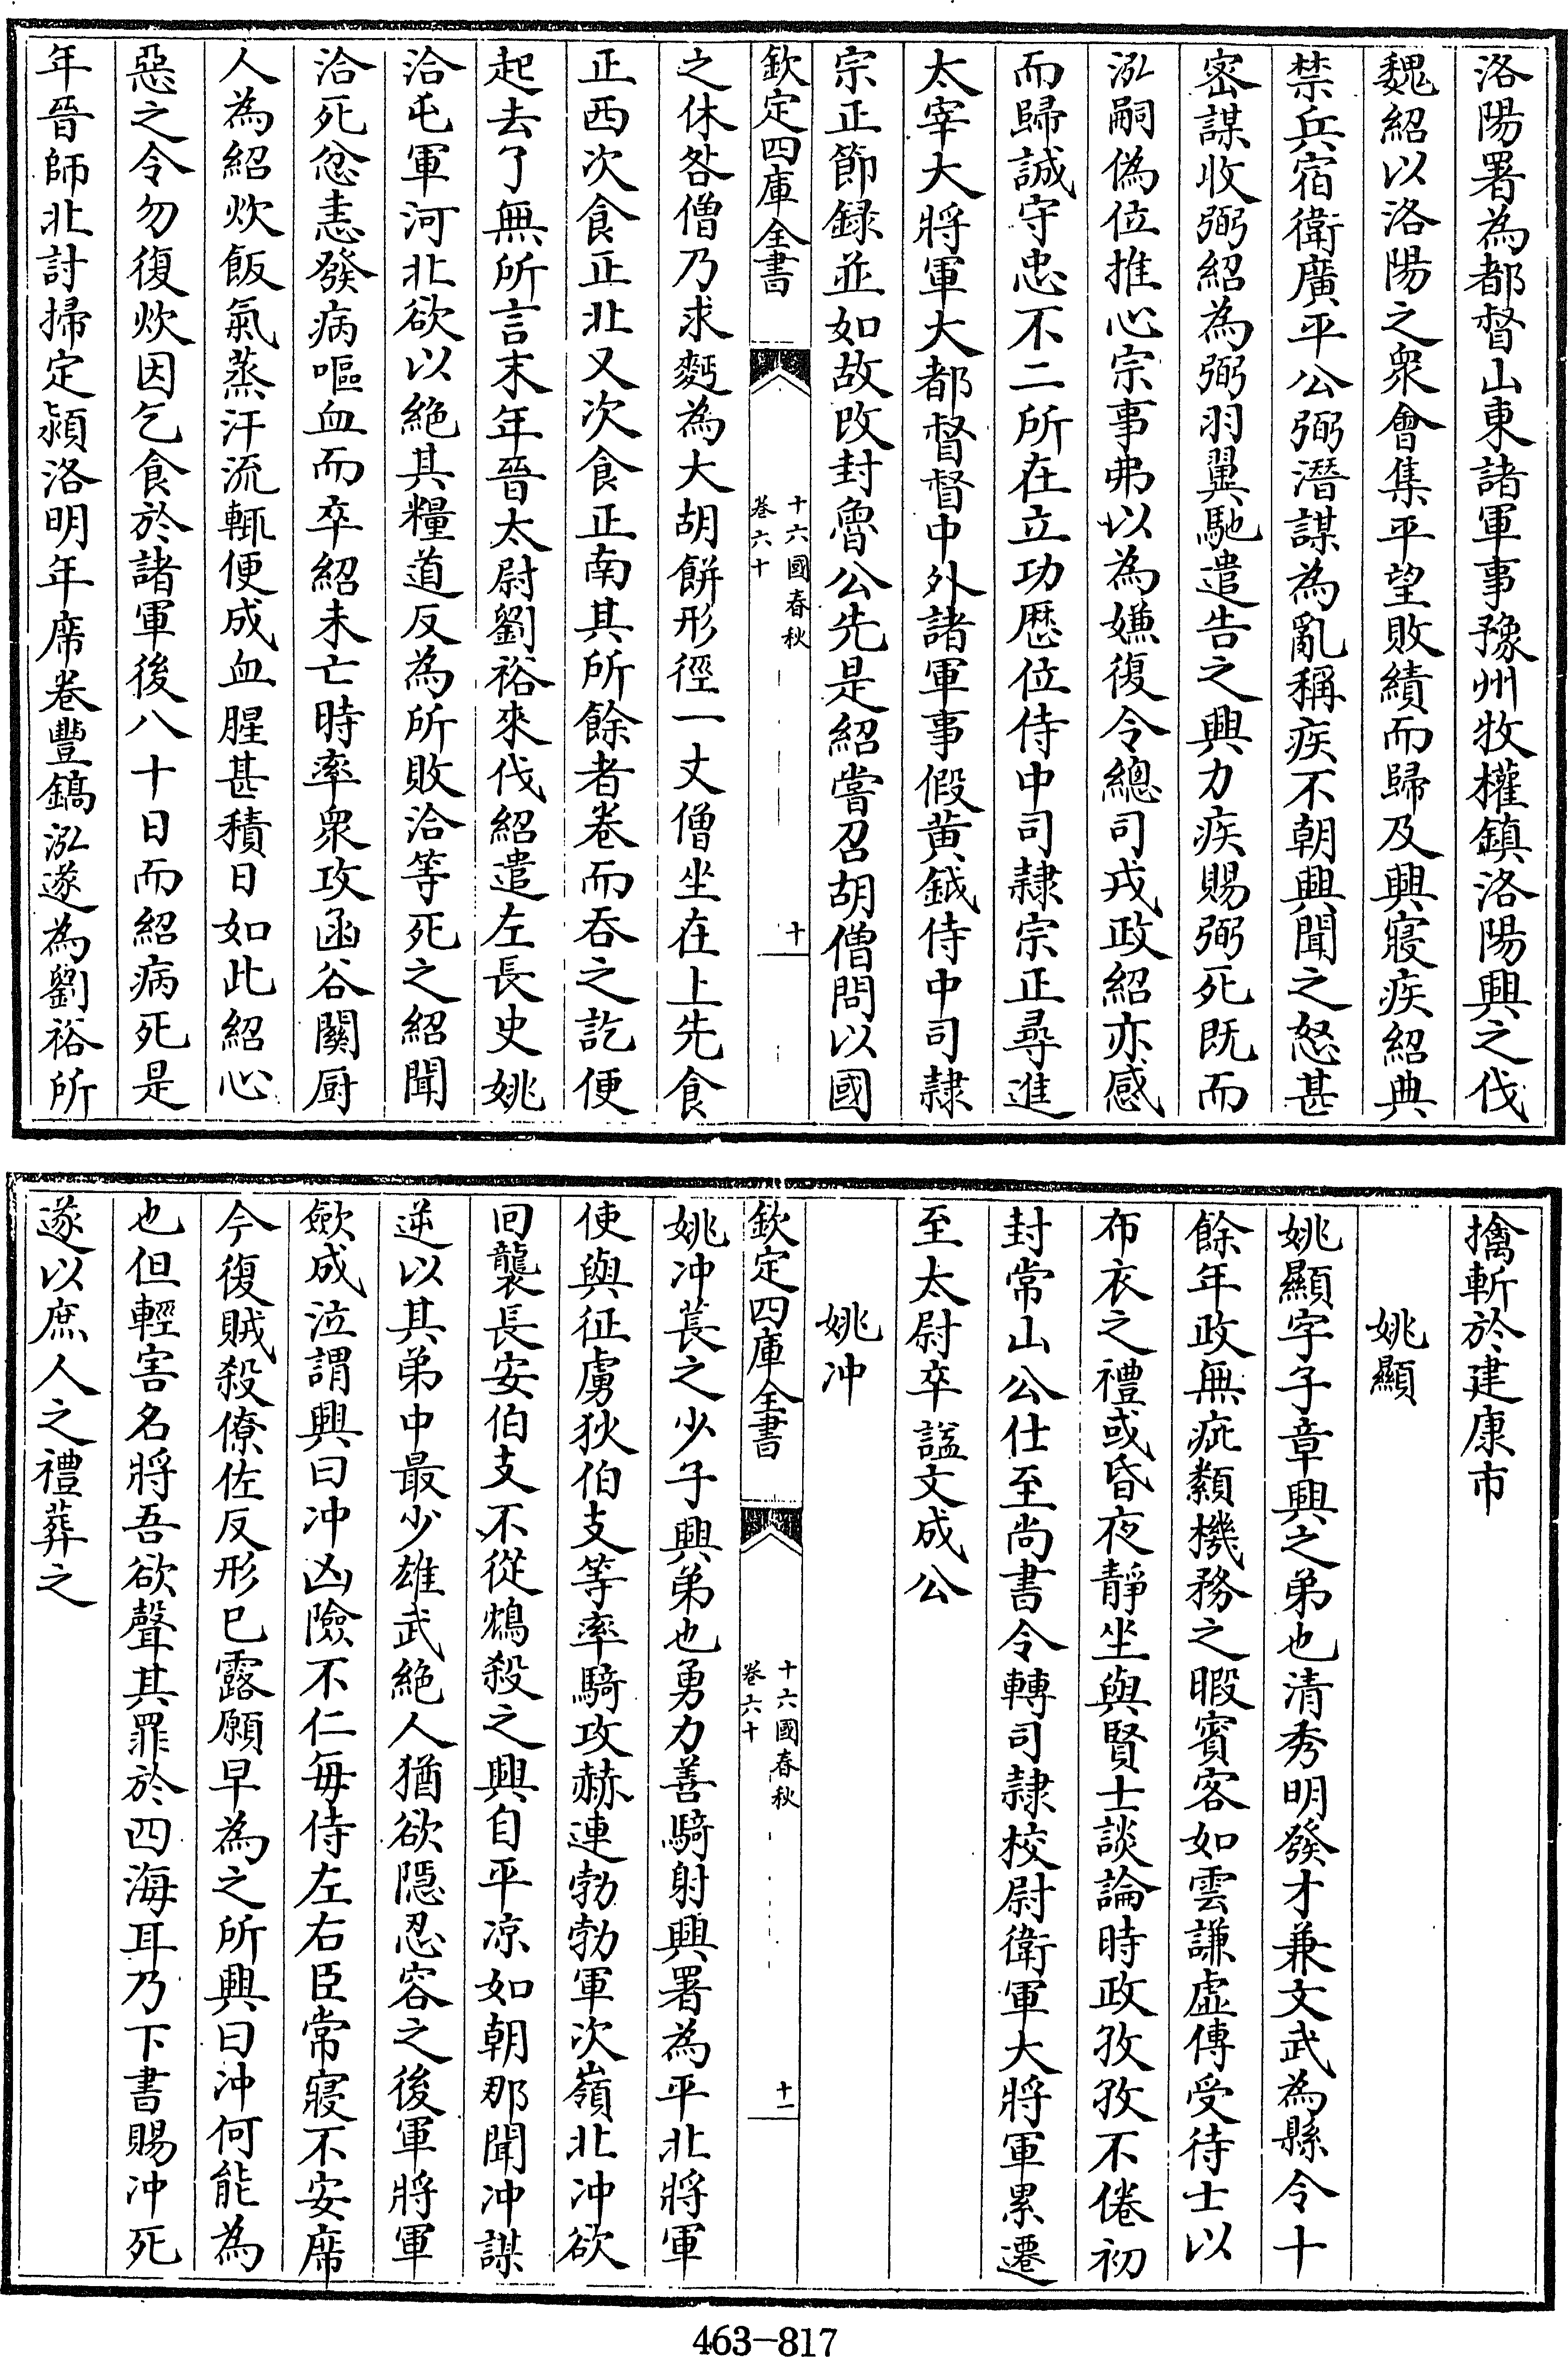 洛陽署為都督山東諸軍事豫州牧權鎮洛陽興之伐
魏紹以洛陽之衆會集平望敗績而歸及興寢疾紹典
禁兵宿衛廣平公弼潛謀為亂稱疾不朝興聞之怒甚
密謀收弼紹為弼羽翼馳遣告之興力疾賜弼死既而
泓嗣偽位推心宗事弗以為嫌復令總司戎政紹亦感
而歸誠守忠不二所在立功歷位侍中司隷宗正尋進
太宰大將軍大都督督中外諸軍事假黄鉞侍中司隷
宗正節録並如故改封魯公先是紹嘗召胡僧問以國
欽定四庫全書
十六國春秋
卷六十
十
之休咎僧乃求麪為大胡餅形徑一丈僧坐在上先食
正西次食正北又次食正南其所餘者卷而吞之訖便
起去了無所言末年晉太尉劉裕來伐紹遣左長史姚
洽屯軍河北欲以絶其糧道反為所敗洽等死之紹聞
洽死忿恚發病嘔血而卒紹未亡時率衆攻函谷關厨
人為紹炊飯氣蒸汗流輒便成血腥甚積日如此紹心
惡之令勿復炊因乞食於諸軍後八十日而紹病死是
年晉師北討掃定潁洛明年席卷豐鎬泓遂為劉裕所
擒斬於建康市
姚顯
姚顯字子章興之弟也清秀明發才兼文武為縣令十
餘年政無疵纇機務之暇賓客如雲謙虛傳受待士以
布衣之禮或昏夜靜坐與賢士談論時政孜孜不倦初
封常山公仕至尚書令轉司隷校尉衛軍大將軍累遷
至太尉卒諡文成公
姚冲
欽定四庫全書
十六國春秋
卷六十
十一
姚冲萇之少子興弟也勇力善騎射興署為平北將軍
使與征虜狄伯支等率騎攻赫連勃勃軍次嶺北冲欲
回襲長安伯支不從鴆殺之興自平凉如朝那聞冲謀
逆以其弟中最少雄武絶人猶欲隱忍容之後軍將軍
斂成泣謂興曰冲凶險不仁每侍左右臣常寢不安席
今復賊殺僚佐反形已露願早為之所興曰冲何能為
也但輕害名將吾欲聲其罪於四海耳乃下書賜冲死
遂以庶人之禮葬之
463-817